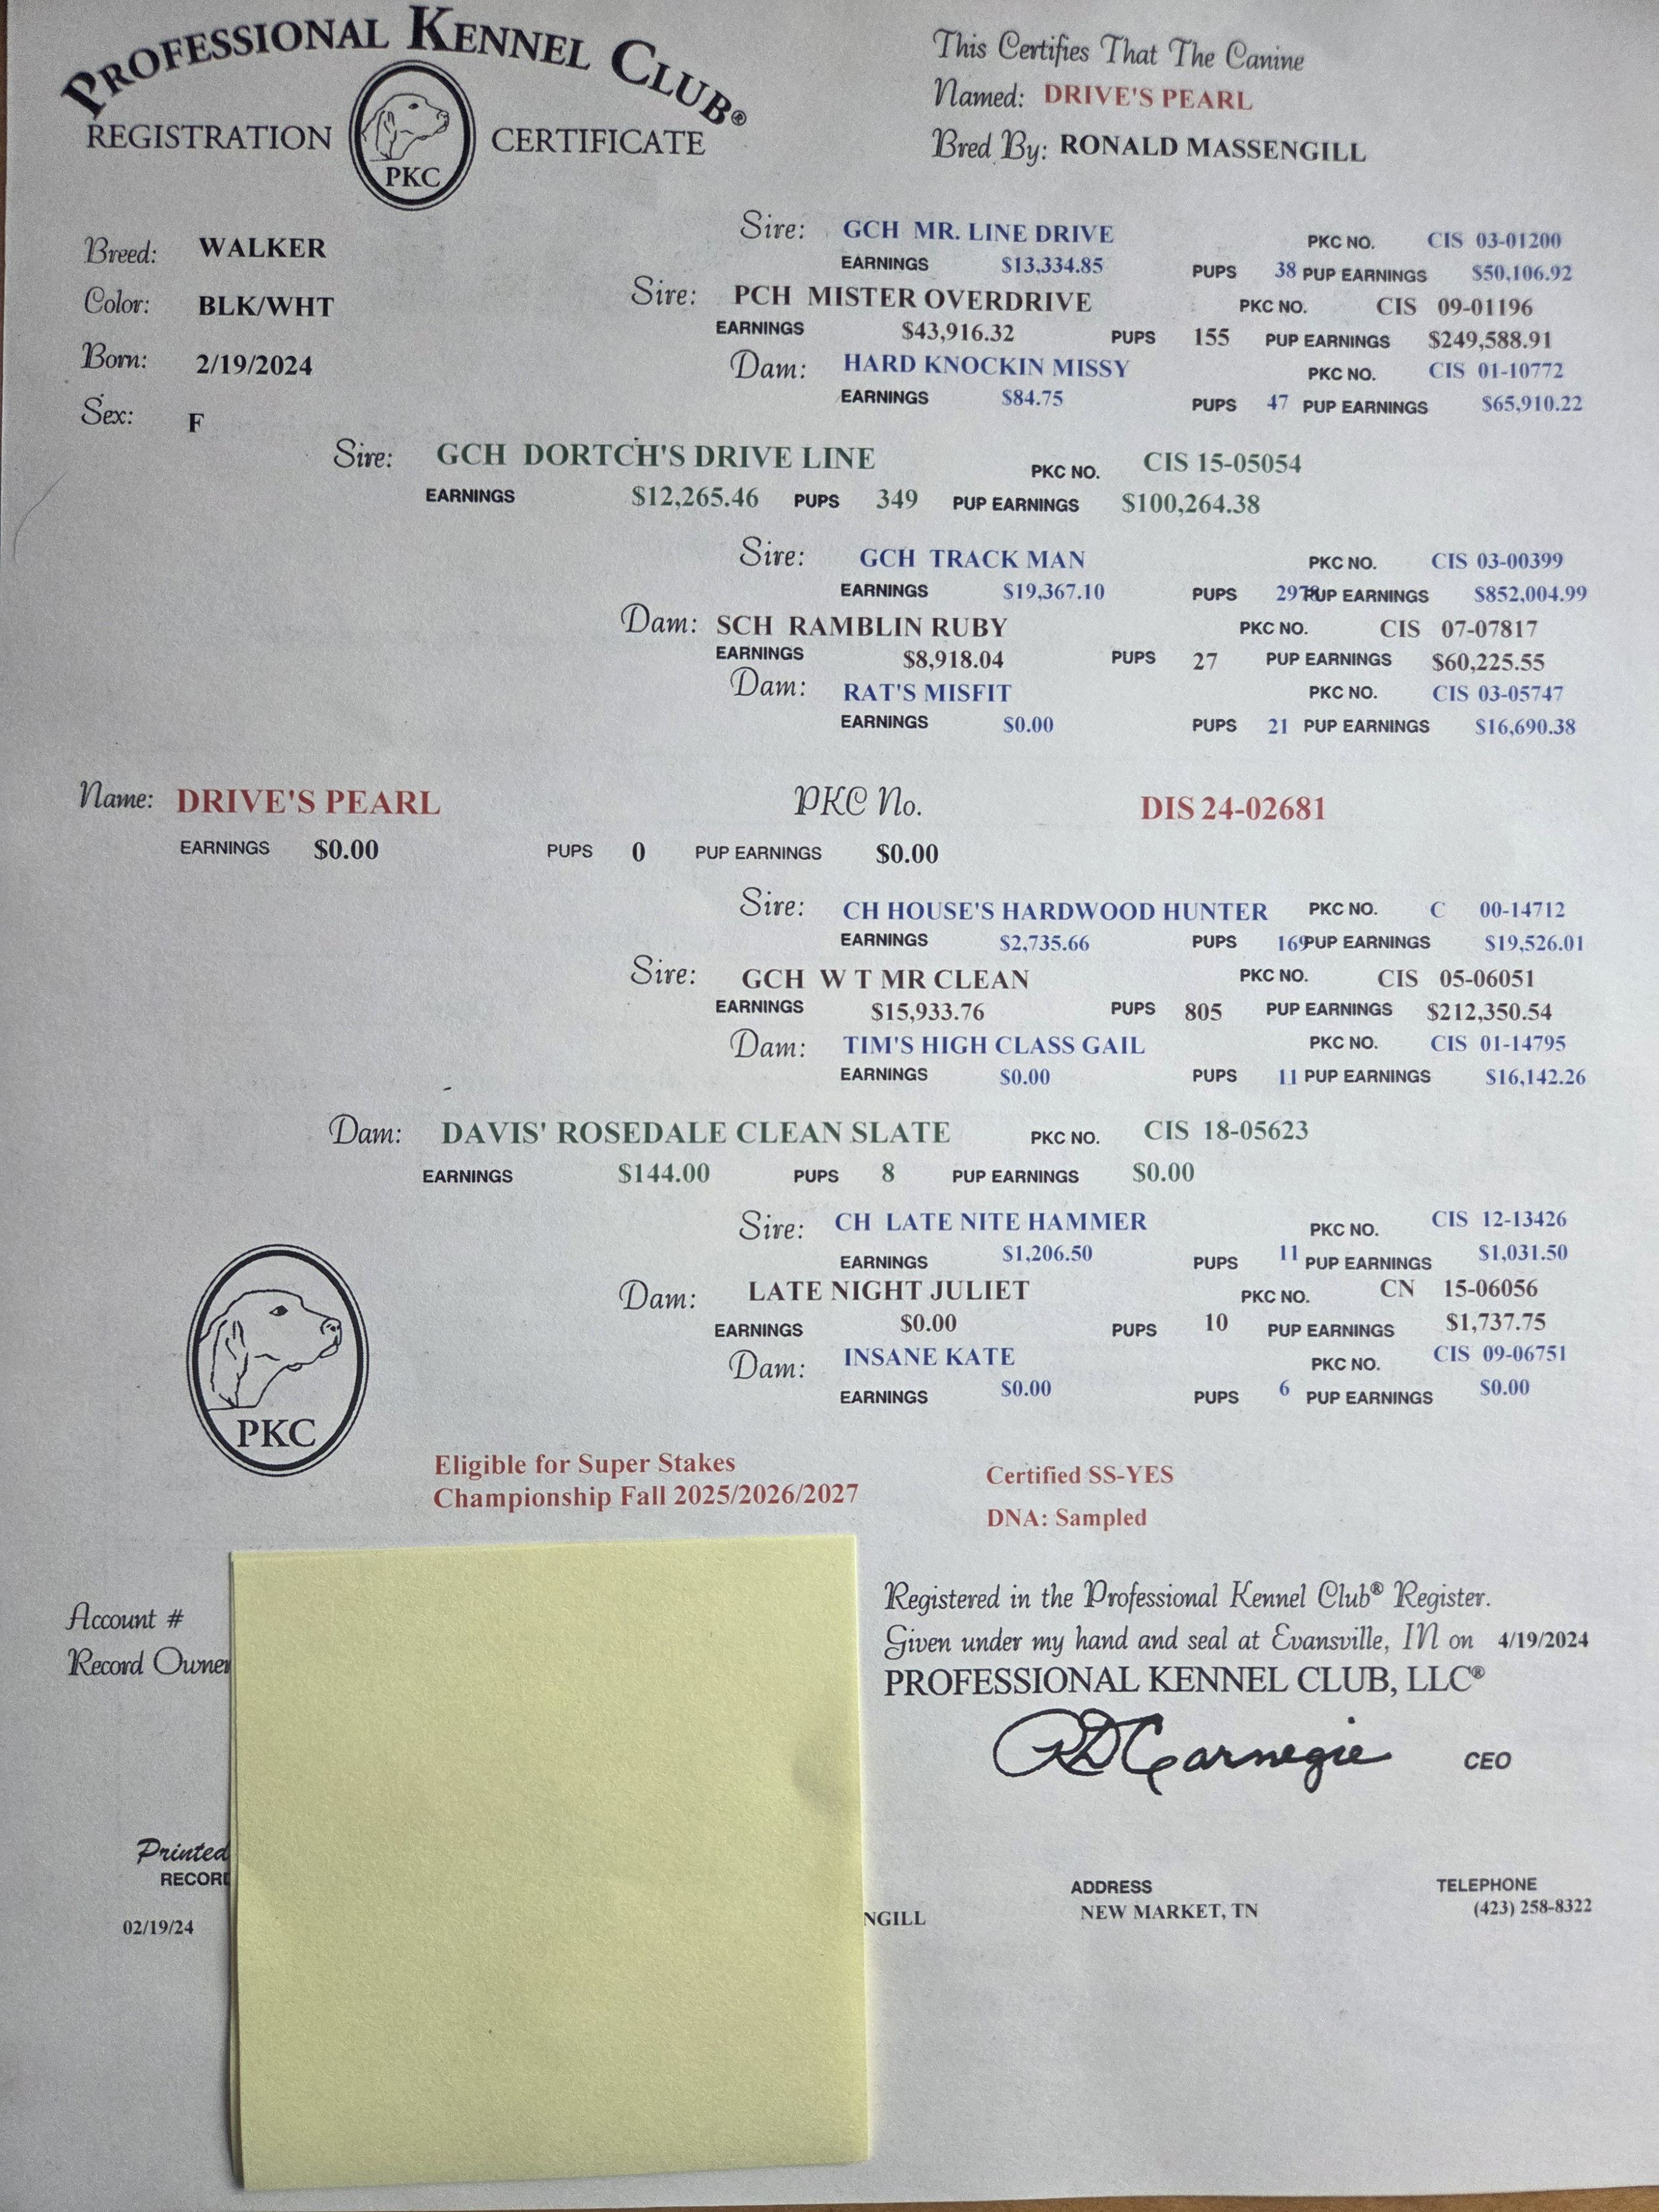 PROFESSIONAL KENNEL CLUB®
REGISTRATION CERTIFICATE
PKC
This Certifies That The Canine
Named: DRIVE'S PEARL
Bred By: RONALD MASSENGILL
Breed: WALKER
Color: BLK/WHT
Born: 2/19/2024
Sex: F
Sire: GCH MR. LINE DRIVE PKC NO. CIS 03-01200
EARNINGS $13,334.85 PUPS 38 PUP EARNINGS $50,106.92
Sire: PCH MISTER OVERDRIVE PKC NO. CIS 09-01196
EARNINGS $43,916.32 PUPS 155 PUP EARNINGS $249,588.91
Dam: HARD KNOCKIN MISSY PKC NO. CIS 01-10772
EARNINGS $84.75 PUPS 47 PUP EARNINGS $65,910.22
Sire: GCH DORTCH'S DRIVE LINE PKC NO. CIS 15-05054
EARNINGS $12,265.46 PUPS 349 PUP EARNINGS $100,264.38
Sire: GCH TRACK MAN PKC NO. CIS 03-00399
EARNINGS $19,367.10 PUPS 2978 PUP EARNINGS $852,004.99
Dam: SCH RAMBLIN RUBY PKC NO. CIS 07-07817
EARNINGS $8,918.04 PUPS 27 PUP EARNINGS $60,225.55
Dam: RAT'S MISFIT PKC NO. CIS 03-05747
EARNINGS $0.00 PUPS 21 PUP EARNINGS $16,690.38
Name: DRIVE'S PEARL PKC No. DIS 24-02681
EARNINGS $0.00 PUPS 0 PUP EARNINGS $0.00
Sire: CH HOUSE'S HARDWOOD HUNTER PKC NO. C 00-14712
EARNINGS $2,735.66 PUPS 169 PUP EARNINGS $19,526.01
Sire: GCH W T MR CLEAN PKC NO. CIS 05-06051
EARNINGS $15,933.76 PUPS 805 PUP EARNINGS $212,350.54
Dam: TIM'S HIGH CLASS GAIL PKC NO. CIS 01-14795
EARNINGS $0.00 PUPS 11 PUP EARNINGS $16,142.26
Dam: DAVIS' ROSEDALE CLEAN SLATE PKC NO. CIS 18-05623
EARNINGS $144.00 PUPS 8 PUP EARNINGS $0.00
Sire: CH LATE NITE HAMMER PKC NO. CIS 12-13426
EARNINGS $1,206.50 PUPS 11 PUP EARNINGS $1,031.50
Dam: LATE NIGHT JULIET PKC NO. CN 15-06056
EARNINGS $0.00 PUPS 10 PUP EARNINGS $1,737.75
Dam: INSANE KATE PKC NO. CIS 09-06751
EARNINGS $0.00 PUPS 6 PUP EARNINGS $0.00
PKC
Eligible for Super Stakes
Championship Fall 2025/2026/2027
Certified SS-YES
DNA: Sampled
Account #
Record Owner
Registered in the Professional Kennel Club® Register.
Given under my hand and seal at Evansville, IN on 4/19/2024
PROFESSIONAL KENNEL CLUB, LLC®
RD Carnegie CEO
Printed
RECORD
ADDRESS TELEPHONE
02/19/24 NGILL NEW MARKET, TN (423) 258-8322